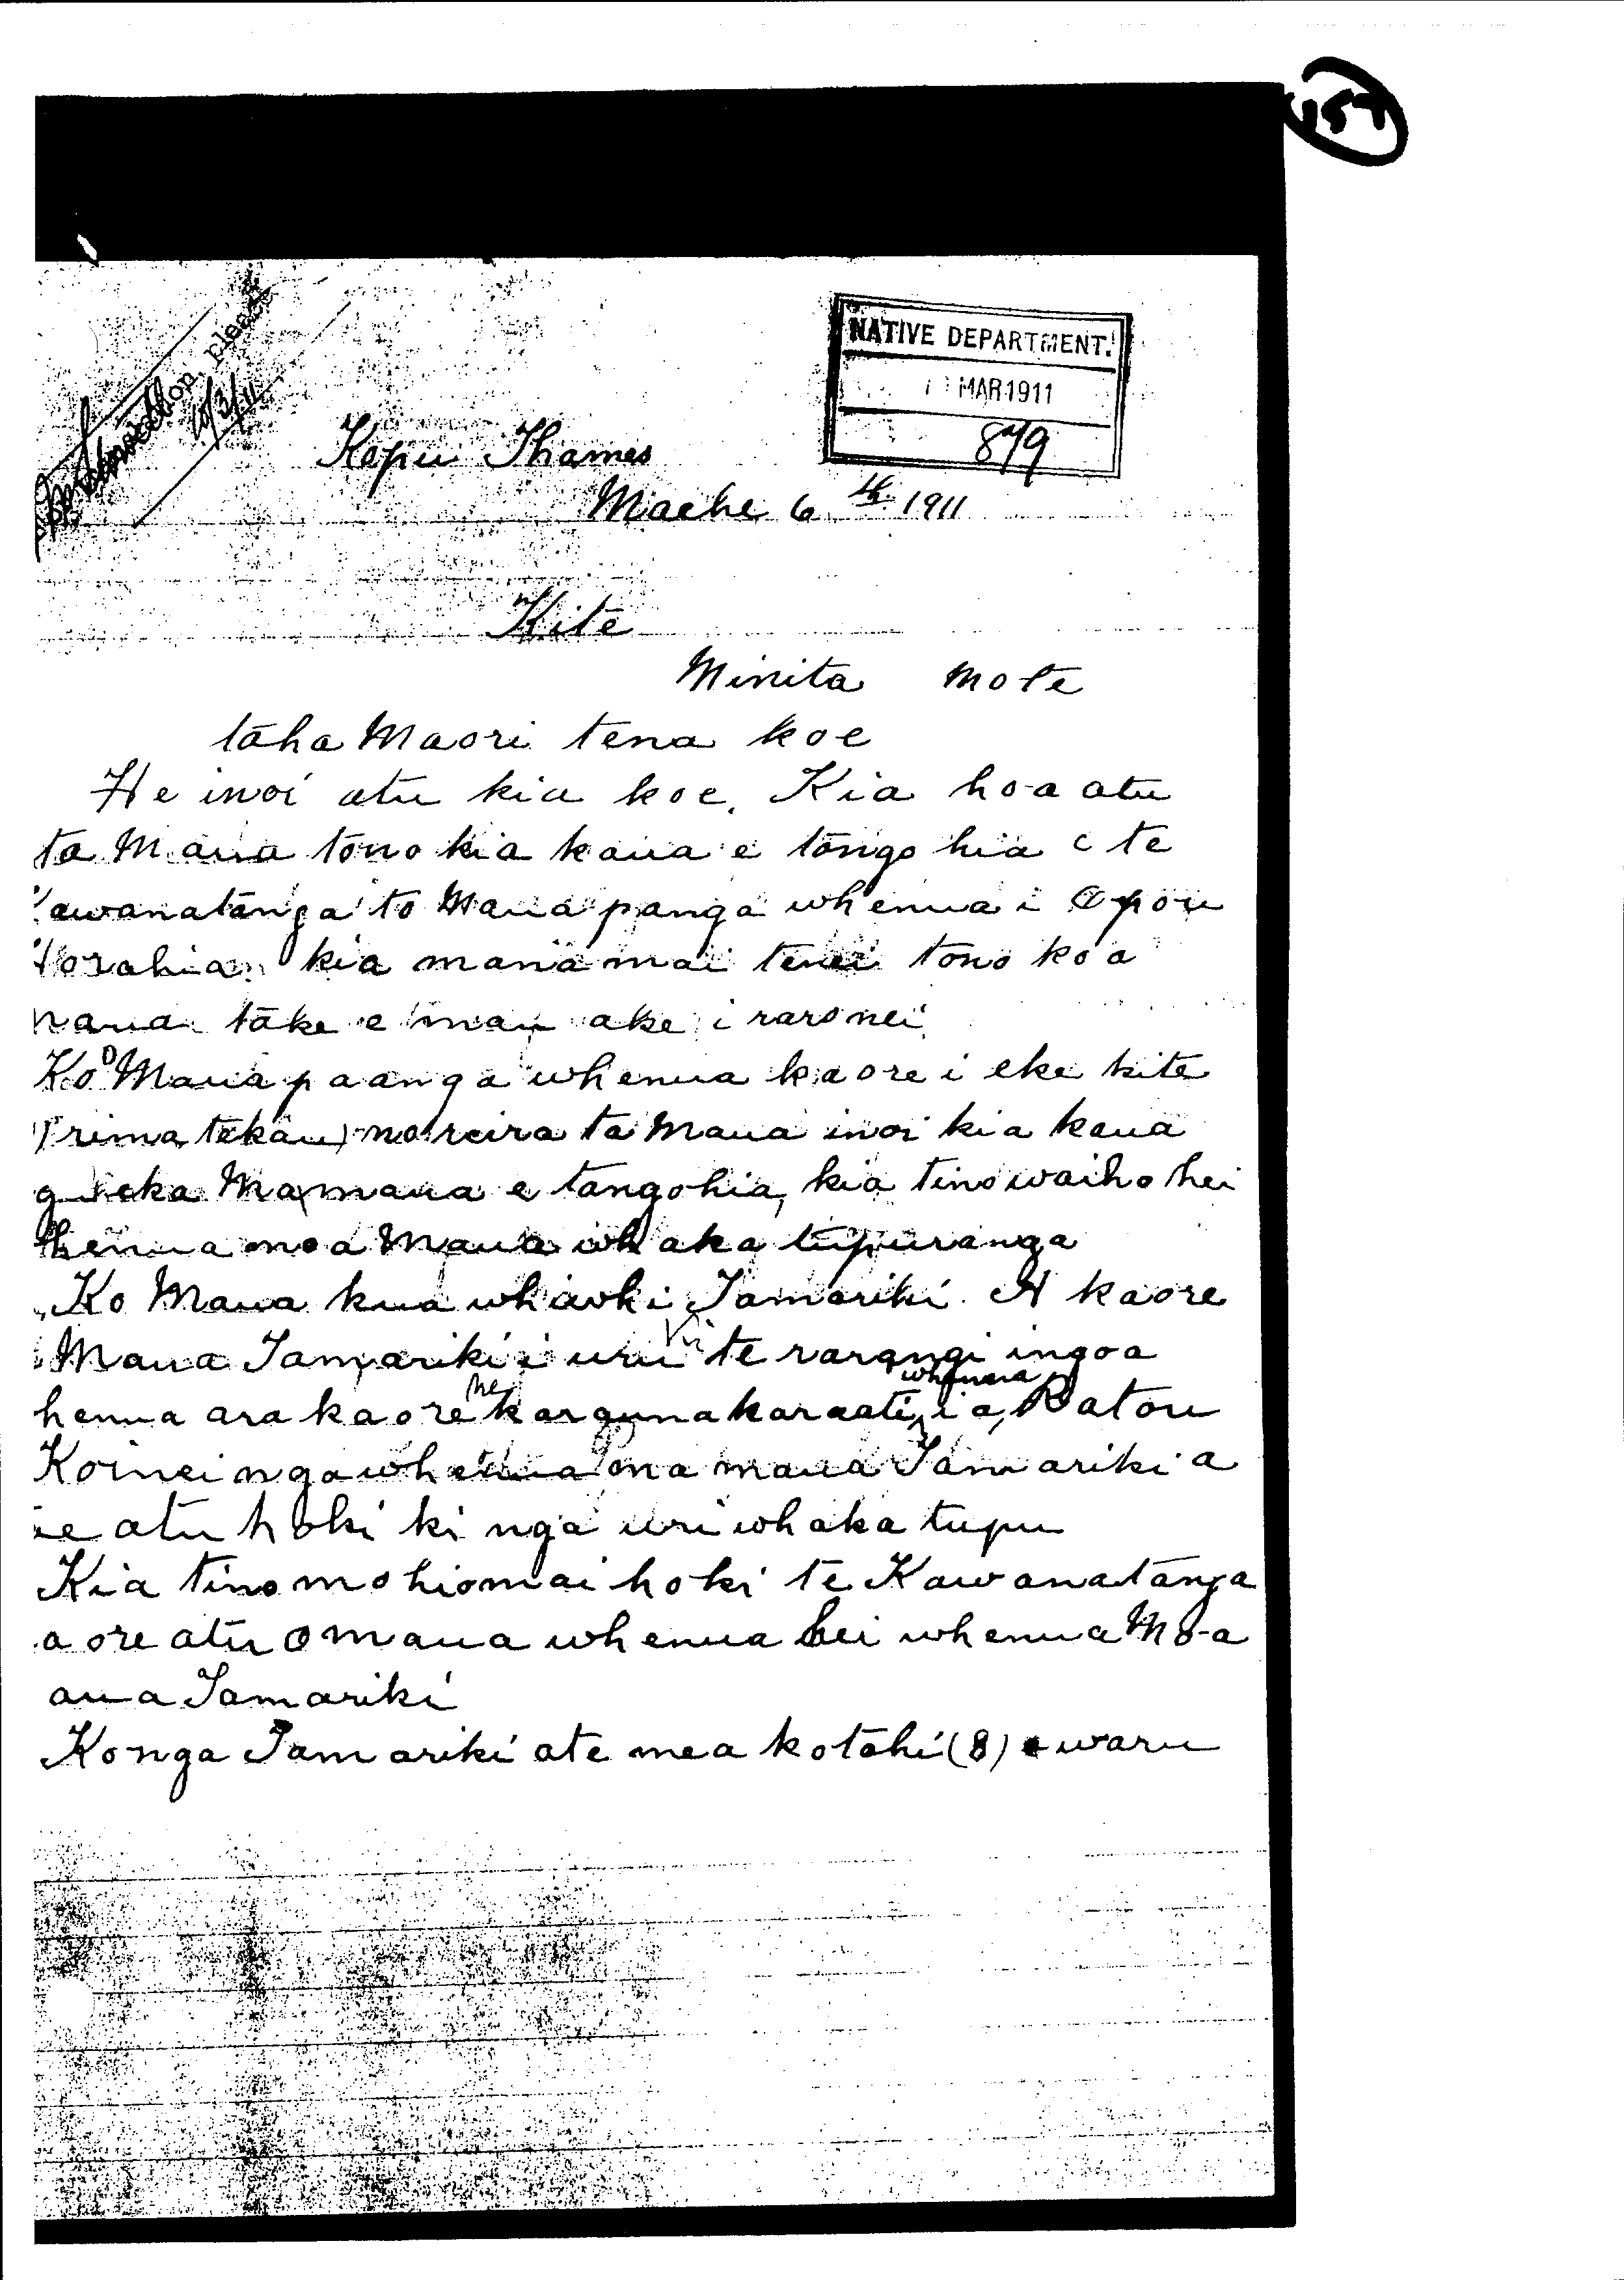 157
NATIVE DEPARTMENT.
MAR 1911
879
please
10/3/11
Kopu Thames
Mache 6th 1911
Kite
Minita mo te
taha Maori tena koe
He inoi atu kia koe. Kia hoa atu
ta Maua tono kia kaua e tangohia i te
awanatanga to Maua panga whenua i Opou
torahia kia mana mai tenei tono ko a
maua take e mau ake i raro nei
Ko o Maua paanga whenua kaore i eke kite
rima tekau) no reira ta Maua inoi kia kaua
g eka Ma maua e tangohia, kia tino waiho hei
henua mo a Maua whaka tupuranga
Ko Maua kua whaoki Tamariki. A kaore
Maua Tamariki i uru ki te rarangi ingoa
henua ara kaore he karauna karaati whenua i a Ratou
Koinei nga whenua ma maua Tamariki a
e atu hoki ki nga uri whaka tupu
Kia tino mohio mai hoki te Kawanatanga
aore atu o maua whenua hei whenua Mo-a
aua Tamariki
Ko nga Tamariki a te mea kotahi (8) e waru